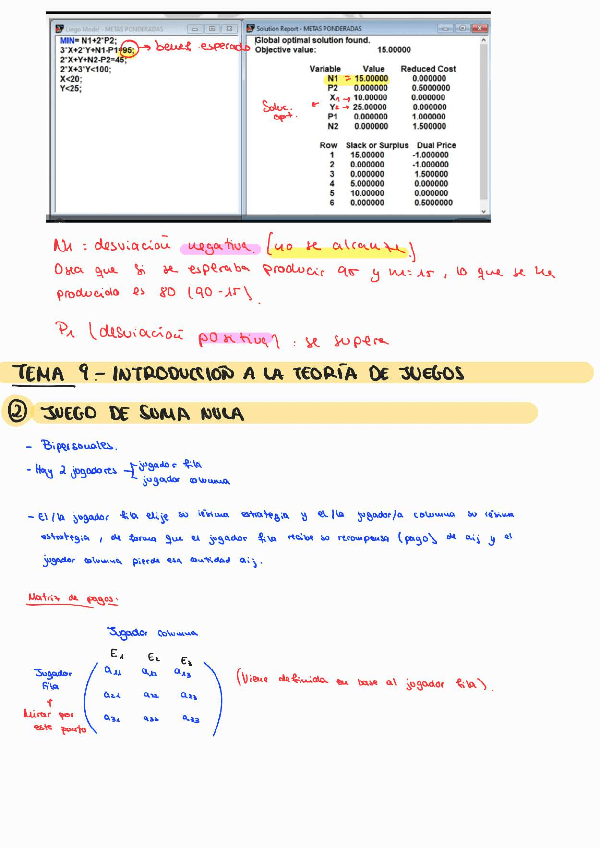 Lingo Model - METAS PONDERADAS
MIN= N1+2*P2;
3*X+2*Y+N1-P1=95; → benef. esperado
2*X+Y+N2-P2=45;
2*X+3*Y<100;
X<20;
Y<25;
Solution Report - METAS PONDERADAS
Global optimal solution found.
Objective value: 15.00000
Variable Value Reduced Cost
N1 15.00000 0.000000
P2 0.000000 0.5000000
X 10.00000 0.000000
Y 25.00000 0.000000
P1 0.000000 1.000000
N2 0.000000 1.500000
Soluc. opt.
Row Slack or Surplus Dual Price
1 15.00000 -1.000000
2 0.000000 -1.000000
3 0.000000 1.500000
4 5.000000 0.000000
5 10.00000 0.000000
6 0.000000 0.5000000
N1 = desviación negativa. [no se alcanza.]
Osea que si se esperaba producir 95 y n1=15, lo que se ha
producido es 80 (90-15).
P1 (desviación positiva) : se supera
TEMA 9.- INTRODUCCIÓN A LA TEORÍA DE JUEGOS
② JUEGO DE SUMA NULA
- Bipersonales.
- Hay 2 jogadores jugador fila
jugador columna
- El/la jugador fila elije su iésima estrategia y el/la jugador/a columna su iésima
estrategia, de forma que el jugador fila recibe su recompensa (pago) de aij y el
jugador columna pierde esa cantidad aij.
Matriz de pagos:
Jugador columna
E1 E2 E3
Jugador fila a11 a12 a13
a21 a22 a23
a31 a32 a33
(Viene definida en base al jugador fila).
Mirar por
este punto